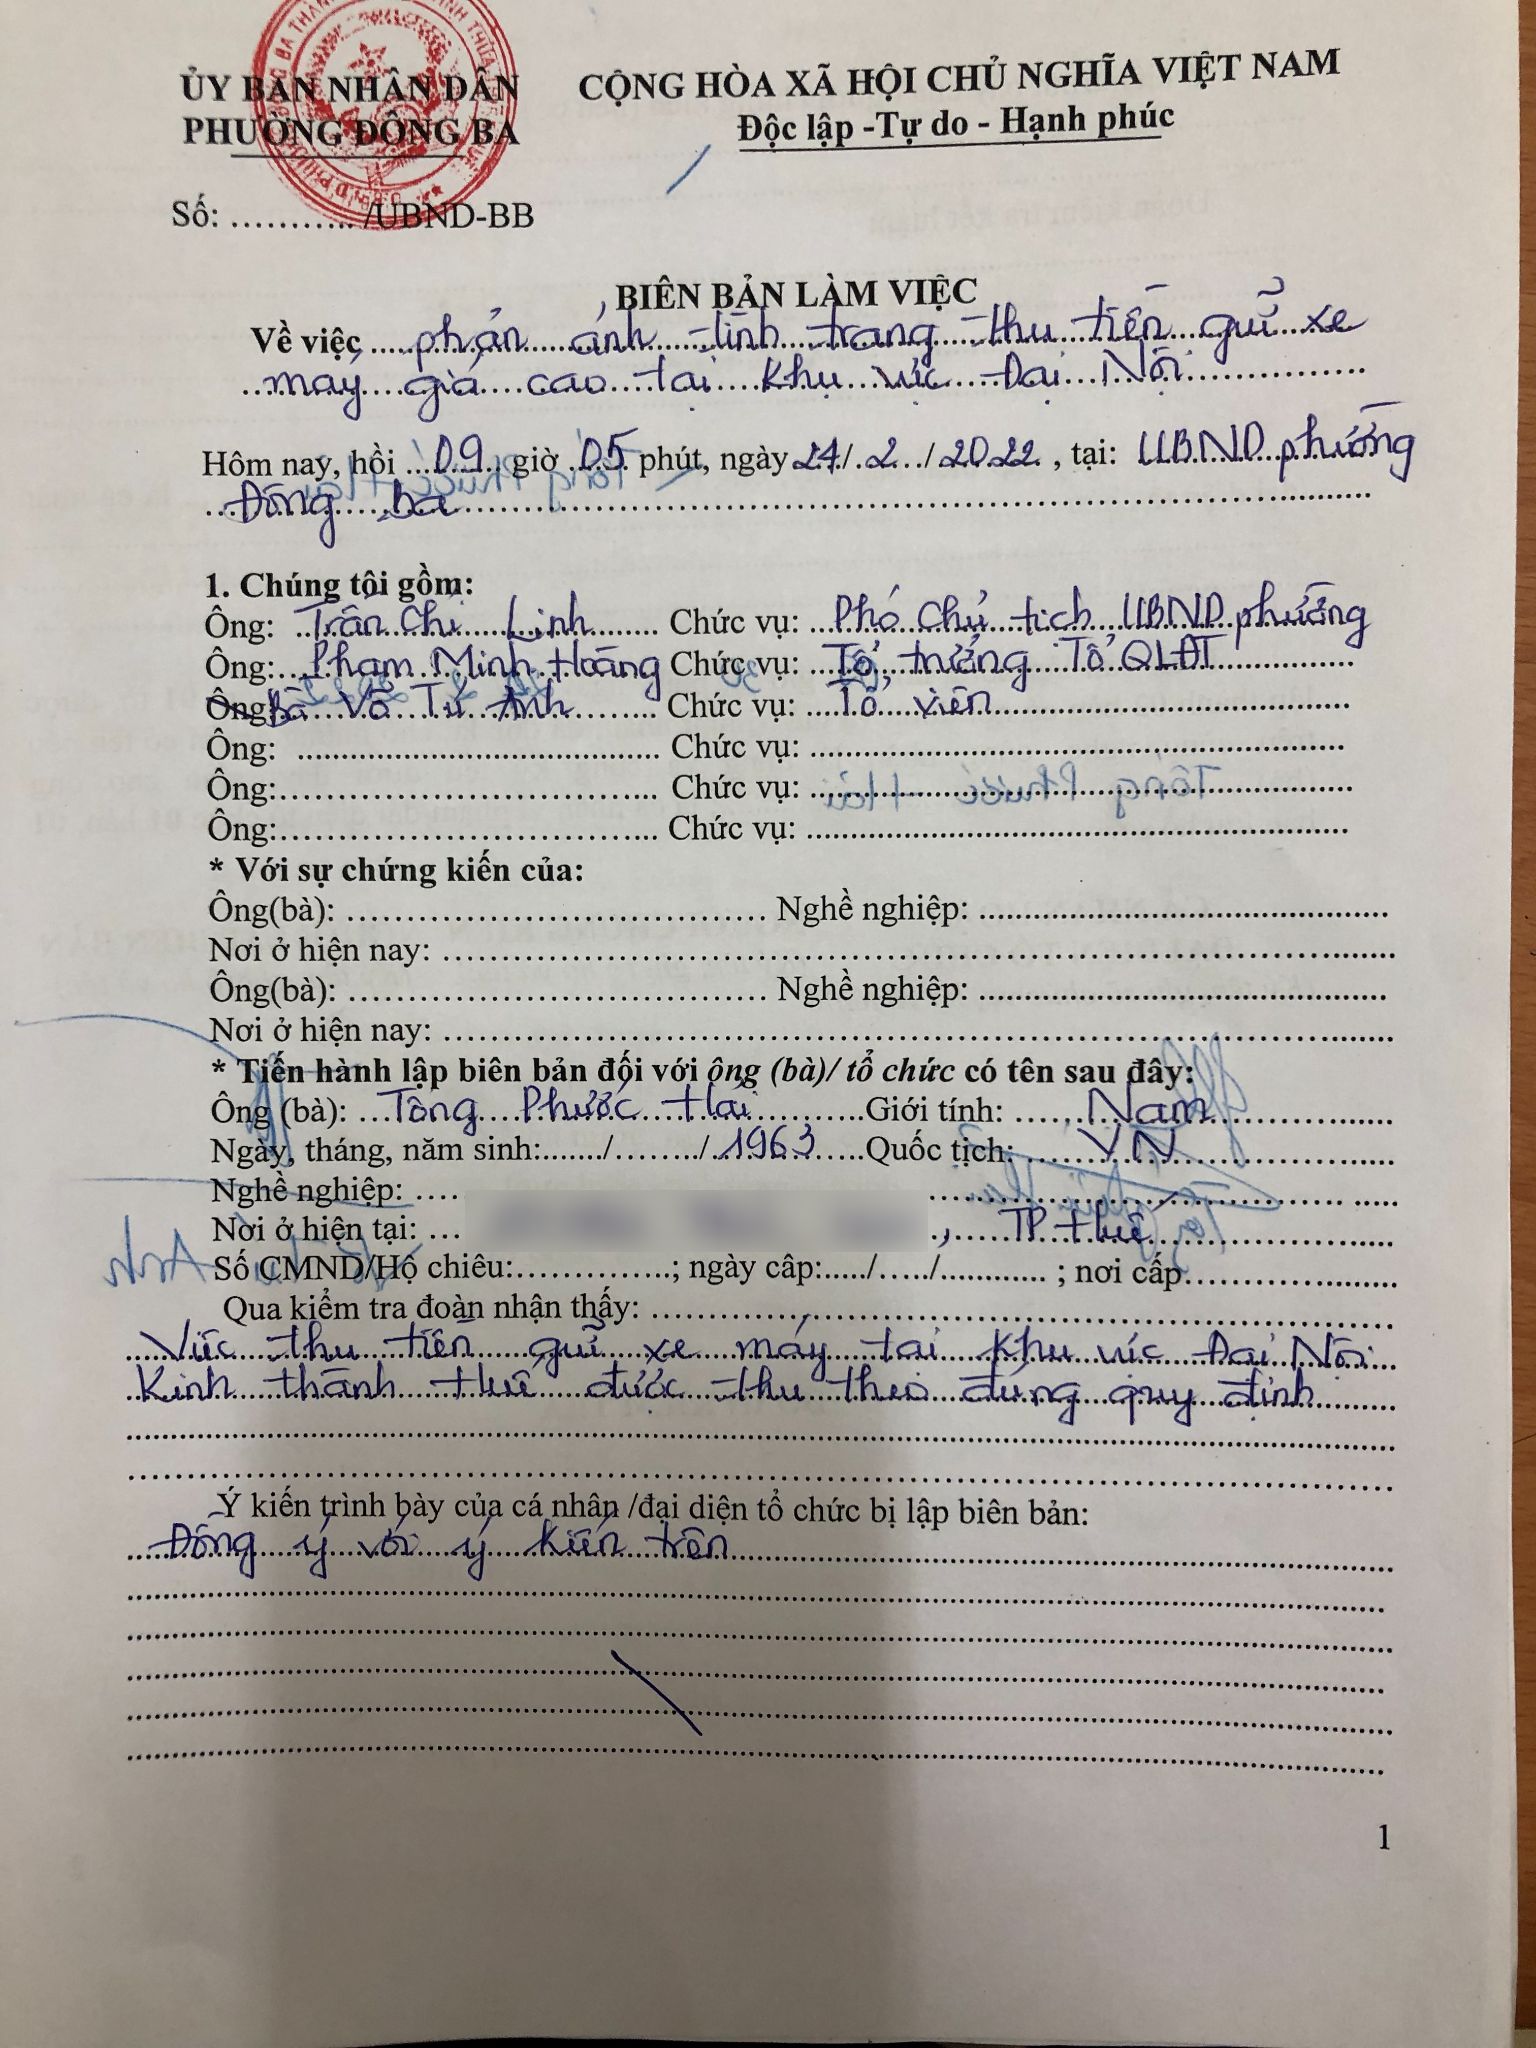 ỦY BAN NHÂN DÂN
PHƯỜNG ĐÔNG BA
CỘNG HÒA XÃ HỘI CHỦ NGHĨA VIỆT NAM
Độc lập -Tự do - Hạnh phúc
Số: ……….. /UBND-BB
BIÊN BẢN LÀM VIỆC
Về việc phản ánh tình trạng thu tiền gửi xe
máy giá cao tại khu vực Đại Nội
Hôm nay, hồi 09 giờ 05 phút, ngày 24/ 2 / 2022, tại: UBND phường
Đông ba
1. Chúng tôi gồm:
Ông: Trần Chí Linh Chức vụ: Phó Chủ tịch UBND phường
Ông: Phạm Minh Hoàng Chức vụ: Tổ trưởng Tổ QLĐT
Ông Bà Võ Tú Anh Chức vụ: Tổ viên
Ông: ........ Chức vụ: ........
Ông: ........ Chức vụ: ........
Ông: ........ Chức vụ: ........
* Với sự chứng kiến của:
Ông(bà): ........ Nghề nghiệp: ........
Nơi ở hiện nay: ........
Ông(bà): ........ Nghề nghiệp: ........
Nơi ở hiện nay: ........
* Tiến hành lập biên bản đối với ông (bà)/ tổ chức có tên sau đây:
Ông (bà): Tống Phước Hải Giới tính: Nam
Ngày, tháng, năm sinh:......./......../ 1963 Quốc tịch: VN
Nghề nghiệp: ....
Nơi ở hiện tại: ... , TP Huế
Số CMND/Hộ chiếu:..............; ngày cấp:...../...../............ ; nơi cấp........
Qua kiểm tra đoàn nhận thấy: ........
Việc thu tiền gửi xe máy tại khu vực Đại Nội
Kinh thành Huế được thu theo đúng quy định
Ý kiến trình bày của cá nhân /đại diện tổ chức bị lập biên bản:
Đồng ý với ý kiến trên
1